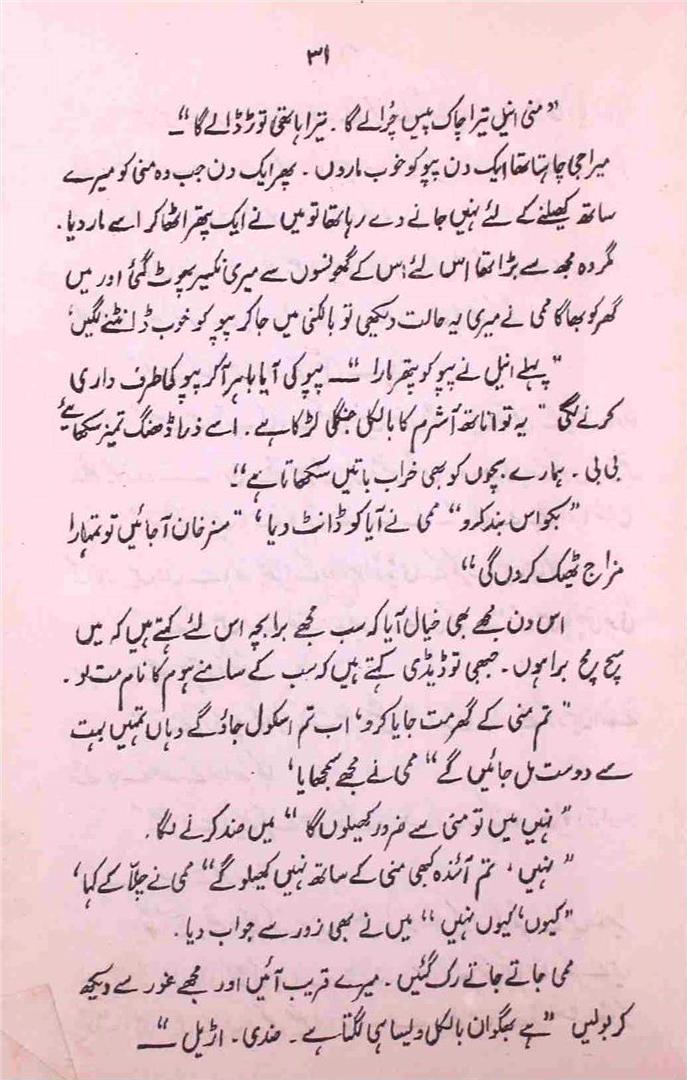 ۳۱
”منی انیل تیرا چاک پیس چُرا لے گا۔ تیرا ہاتھی توڑ ڈالے گا“ —
میرا جی چاہتا تھا ایک دن پپو کو خوب ماروں۔ پھر ایک دن جب وہ منی کو میرے
ساتھ کھیلنے کے لئے نہیں جانے دے رہا تھا تو میں نے ایک پتھر اٹھا کر اسے مار دیا۔
مگر وہ مجھ سے بڑا تھا اس لئے اس کے گھونسوں سے میری نکسیر پھوٹ گئی اور میں
گھر کو بھاگا ممی نے میری یہ حالت دیکھی تو بالکنی میں جا کر پپو کو خوب ڈانٹنے لگیں‘
”پہلے انیل نے پپو کو پتھر مارا“ — پپو کی آیا باہر آکر پپو کی طرف داری
کرنے لگی ”یہ تو اناتھ آشرم کا بالکل جنگلی لڑکا ہے۔ اسے ذرا ڈھنگ تمیز سکھایئے
بی بی۔ ہمارے بچوں کو بھی خراب باتیں سکھاتا ہے“۔
”بکواس بند کرو“ ممی نے آیا کو ڈانٹ دیا‘ ”مسز خان آجائیں تو تمہارا
مزاج ٹھیک کردوں گی“
اس دن مجھے بھی خیال آیا کہ سب مجھے برا بچہ اس لئے کہتے ہیں کہ میں
سچ مچ برا ہوں۔ جبھی تو ڈیڈی کہتے ہیں کہ سب کے سامنے ہوم کا نام مت لو۔
”تم منی کے گھر مت جایا کرو‘ اب تم اسکول جاؤ گے وہاں تمہیں بہت
سے دوست مل جائیں گے“ ممی نے مجھے سمجھایا‘
”نہیں میں تو منی سے ضرور کھیلوں گا“ میں ضد کرنے لگا۔
”نہیں‘ تم آئندہ کبھی منی کے ساتھ نہیں کھیلو گے“ ممی نے چلّا کے کہا‘
”کیوں‘ کیوں نہیں“ میں نے بھی زور سے جواب دیا۔
ممی جاتے جاتے رک گئیں۔ میرے قریب آئیں اور مجھے غور سے دیکھ
کر بولیں ”ہے بھگوان بالکل ویسا ہی لگتا ہے۔ ضدی۔ اڑیل“ —